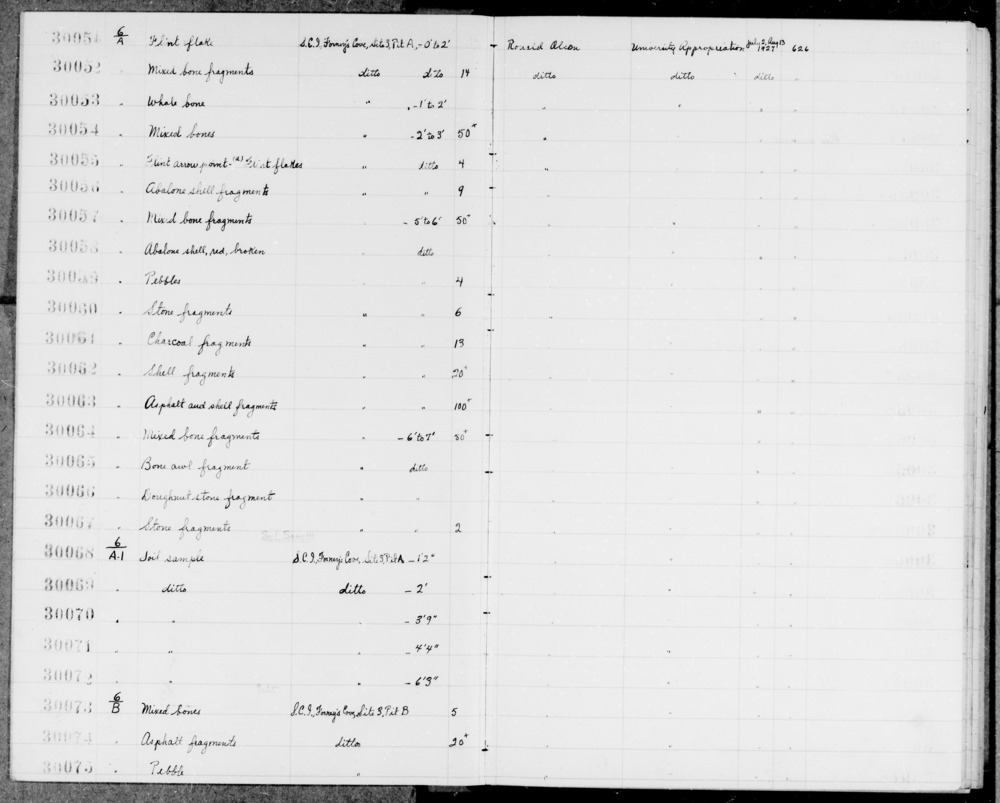 30051 6/A Flint flake S.C.I, Forney's Cove, Site 3, Pit A, -0' to 2' Ronald Olson University Appropriation July 2, Aug 13 1927 626
30052 . Mixed bone fragments ditto ditto 14 ditto ditto ditto "
30053 . Whale bone " -1' to 2'
30054 . Mixed bones " -2' to 3' 50+
30055 . Flint arrow point - (2) Flint flakes " ditto 4
30056 . Abalone shell fragments " " 9
30057 . Mixed bone fragments - 5' to 6' 50+
30058 . Abalone shell, red, broken " ditto
30059 . Pebbles " " 4
30060 . Stone fragments " " 6
30061 . Charcoal fragments " " 13
30062 . Shell fragments " " 20+
30063 . Asphalt and shell fragments " " 100+
30064 . Mixed bone fragments " - 6' to 7' 50+
30065 . Bone awl fragment " ditto
30066 . Doughnut stone fragment " "
30067 . Stone fragments " " 2
30068 6/A-1 Soil sample S.C.I, Forney's Cove, Site 3, Pit A - 1'2"
30069 . ditto ditto - 2'
30070 . " " - 3'9"
30071 . " " - 4'4"
30072 . " " - 6'3"
30073 6/B Mixed bones S.C.I, Forney's Cove, Site 3, Pit B 5
30074 . Asphalt fragments ditto 20+
30075 . Pebble "